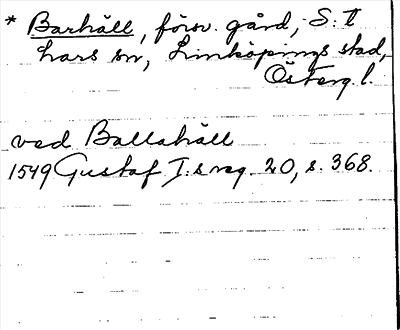 * Barhäll, försv. gård, S:t
Lars sn, Linköpings stad,
Österg. l.
ved Ballahäll
1549 Gustaf I:s reg. 20, s. 368.